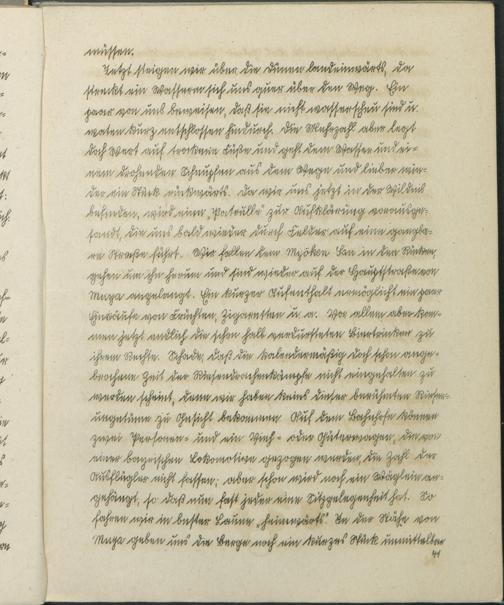 müssen.
Jetzt steigen wir über die Dünen landeinwärts, da
streckt ein Wasserarm sich uns quer über den Weg. Ein
paar von uns beweisen, daß sie nicht wasserscheu sind u.
waten kurz entschlossen hindurch. Die Mehrzahl aber legt
doch Wert auf trockene Füße und geht dem Wasser und ei-
nem drohenden Schnupfen aus dem Wege und lieber wie-
der ein Stück rückwärts. Da wir uns jetzt in der Wildnis
befinden, wird eine „Patrulle“ zur Aufklärung vorausge-
sandt, die uns bald wieder durch Felder auf eine gangba-
re Straße führt. Wir fallen dem Myoken Zen in den Rücken,
gehen um ihn herum und sind wieder auf der Hauptstraße von
Muya angelangt. Ein kurzer Aufenthalt ermöglicht ein paar
Einkäufe von Früchten, Zigaretten u. a. Vor allem aber kom-
men jetzt endlich die schon halb verdursteten Biertrinker zu
ihrem Rechte. Schade, daß die kalendermäßig doch schon ange-
brochene Zeit der Riesendrachenkämpfe nicht eingehalten zu
werden scheint, denn wir haben keines dieser berühmten Riesen-
ungetüme zu Gesicht bekommen. Auf dem Bahnhofe können
zwei Personen- und ein Vieh- oder Güterwagen, die von
einer bayrischen Lokomotive gezogen werden, die Zahl der
Ausflügler nicht fassen; aber schon wird noch ein Wäglein an-
gehängt, so daß nun fast jeder eine Sitzgelegenheit hat. So
fahren wir in bester Laune „heimwärts“. In der Nähe von
Muya geben uns die Berge noch ein kurzes Stück unmittelbar
41